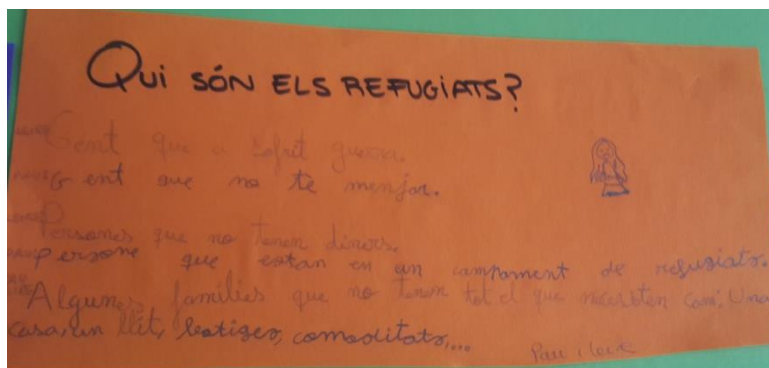 Qui SÓN ELS REFUGiATS?
Gent que a sofrit guerra.
Gent que no te menjar.
Persones que no tenen diners.
persone que estan en un campament de refugiats.
Algunes famílies que no tenen tot el que necesiten com: Una
casa, un llit, botiges, comoditats,...
Pau i